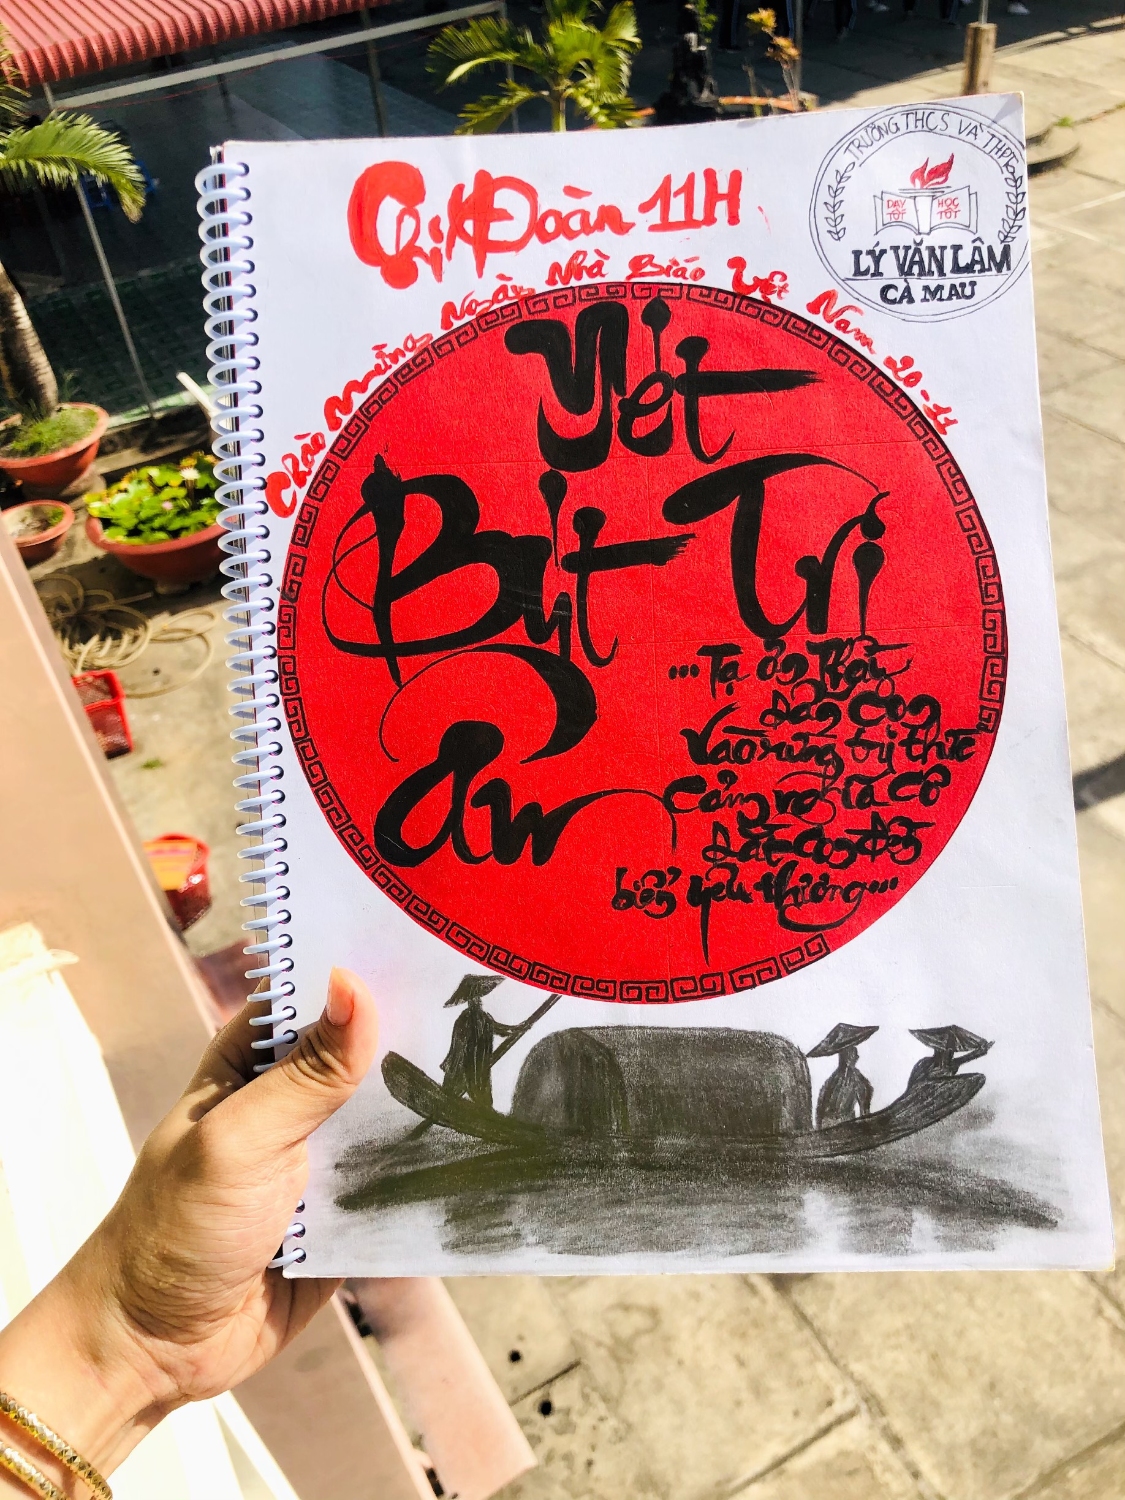 Chi Đoàn 11H
TRƯỜNG THCS VÀ THPT
DẠY TỐT
HỌC TỐT
LÝ VĂN LÂM
CÀ MAU
Chào Mừng Ngày Nhà Giáo Việt Nam 20-11
Nét
Bút Tri
Ân
...Tạ ơn Thầy
dẫn con
vào rừng tri thức
Cảm nghĩa cô
dắt con đến
biển yêu thương...